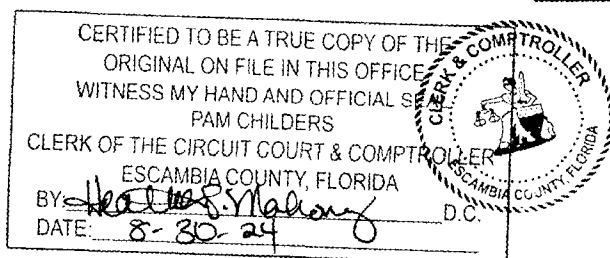 CERTIFIED TO BE A TRUE COPY OF THE
ORIGINAL ON FILE IN THIS OFFICE
WITNESS MY HAND AND OFFICIAL S
PAM CHILDERS
CLERK OF THE CIRCUIT COURT & COMPTROLLER
ESCAMBIA COUNTY, FLORIDA
BY: D.C.
DATE: 8-30-24
CLERK & COMPTROLLER
ESCAMBIA COUNTY, FLORIDA